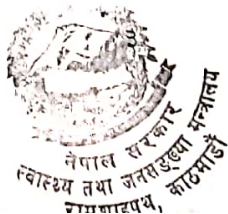 नेपाल सरकार
स्वास्थ्य तथा जनसङ्ख्या मन्त्रालय
रामशाहपथ, काठमाडौं